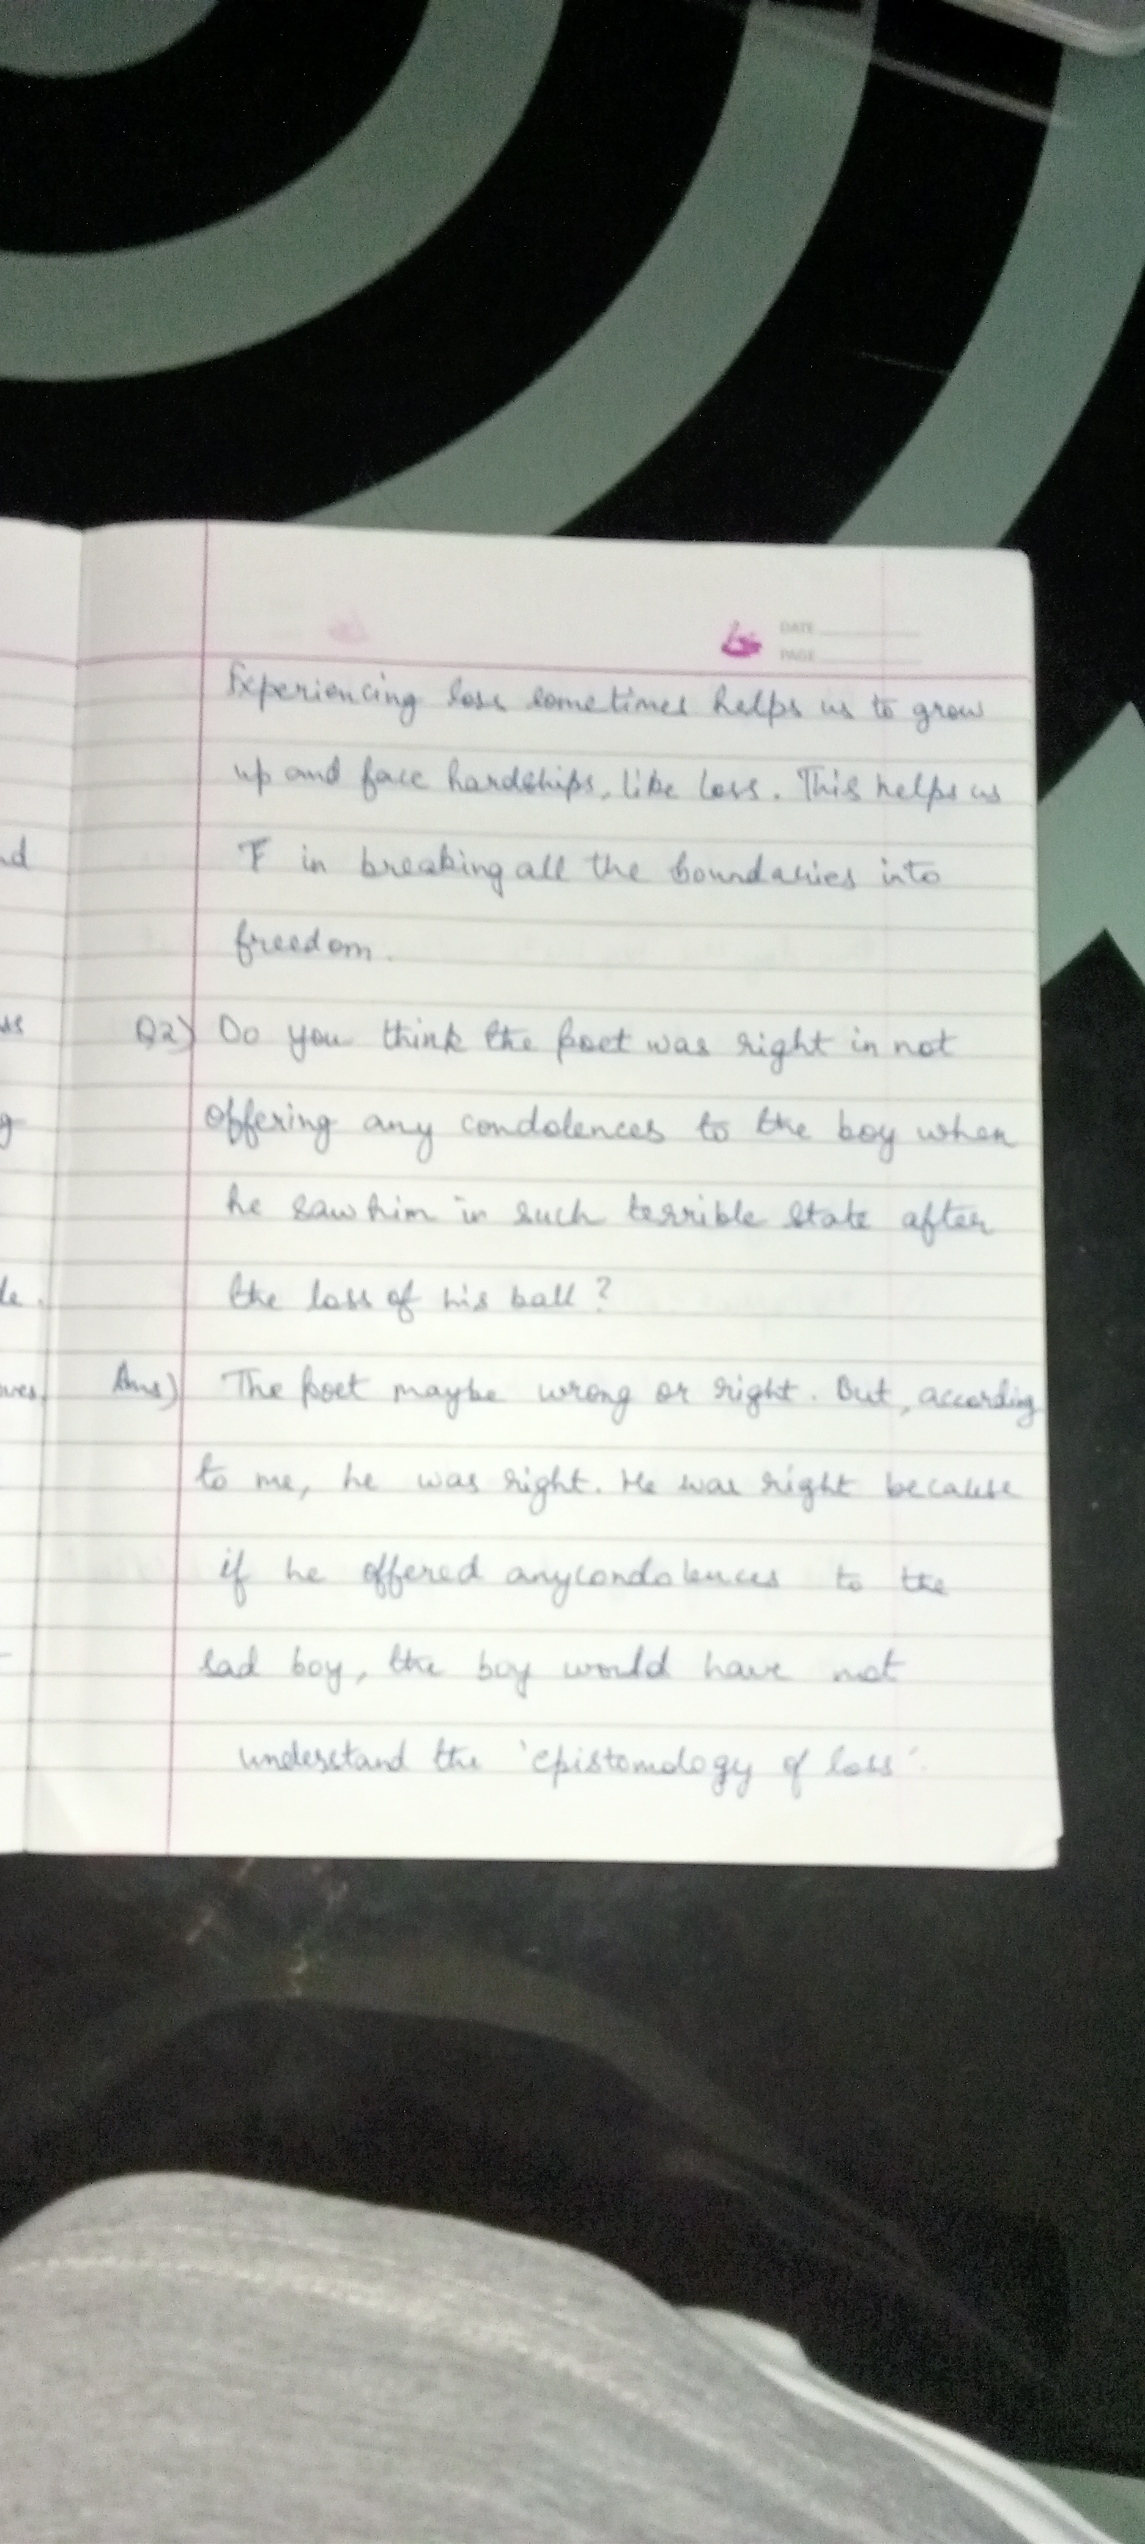 DATE
PAGE
Experiencing loss sometimes helps us to grow
up and face hardships, like loss. This helps us
F in breaking all the boundaries into
freedom.
Q2) Do you think the poet was right in not
offering any condolences to the boy when
he saw him in such terrible state after
the loss of his ball?
Ans) The poet maybe wrong or right. But, according
to me, he was right. He was right because
if he offered any condolences to the
sad boy, the boy would have not
understand the 'epistomology of loss'.